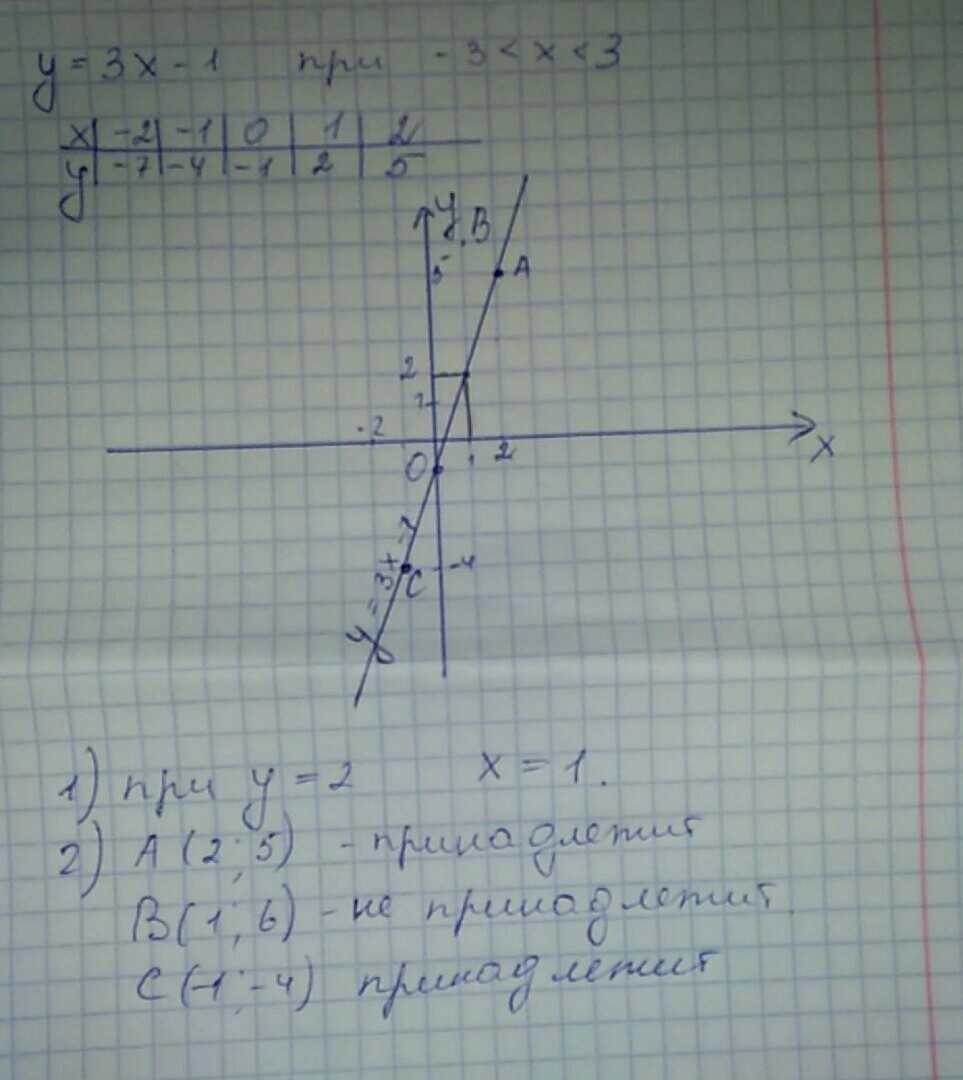 y = 3x - 1 при - 3 < x < 3
x | -2 | -1 | 0 | 1 | 2
y | -7 | -4 | -1 | 2 | 5
y
B
5
A
2
1
-2
2
x
O
-4
C
y = 3x - 1
1) при y = 2 x = 1.
2) A (2; 5) - принадлежит
B (1; 6) - не принадлежит.
C (-1; -4) принадлежит